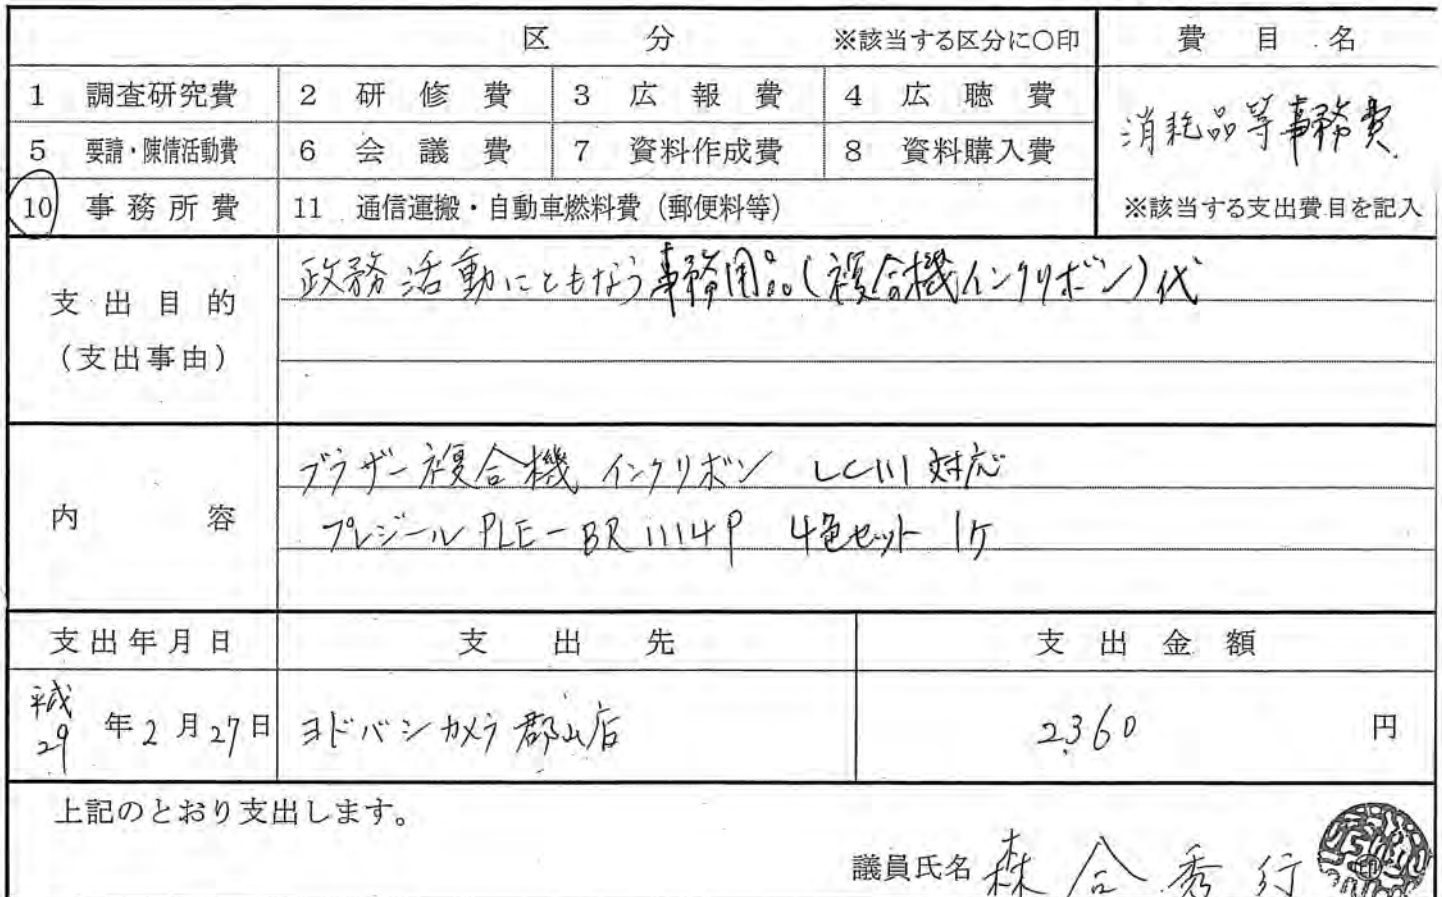 区 分 ※該当する区分に○印 費 目 名
1 調査研究費 2 研 修 費 3 広 報 費 4 広 聴 費
消耗品等事務費
5 要請・陳情活動費 6 会 議 費 7 資料作成費 8 資料購入費
10 事務所費 11 通信運搬・自動車燃料費(郵便料等) ※該当する支出費目を記入
支出目的
(支出事由)
政務活動にともなう事務用品(複合機インクリボン)代
内 容
ブラザー複合機 インクリボン LC111対応
プレジール PLE-BR1114P 4色セット 1ケ
支出年月日 支 出 先 支 出 金 額
平成29年2月27日 ヨドバシカメラ郡山店 2,360 円
上記のとおり支出します。
議員氏名 森合秀行